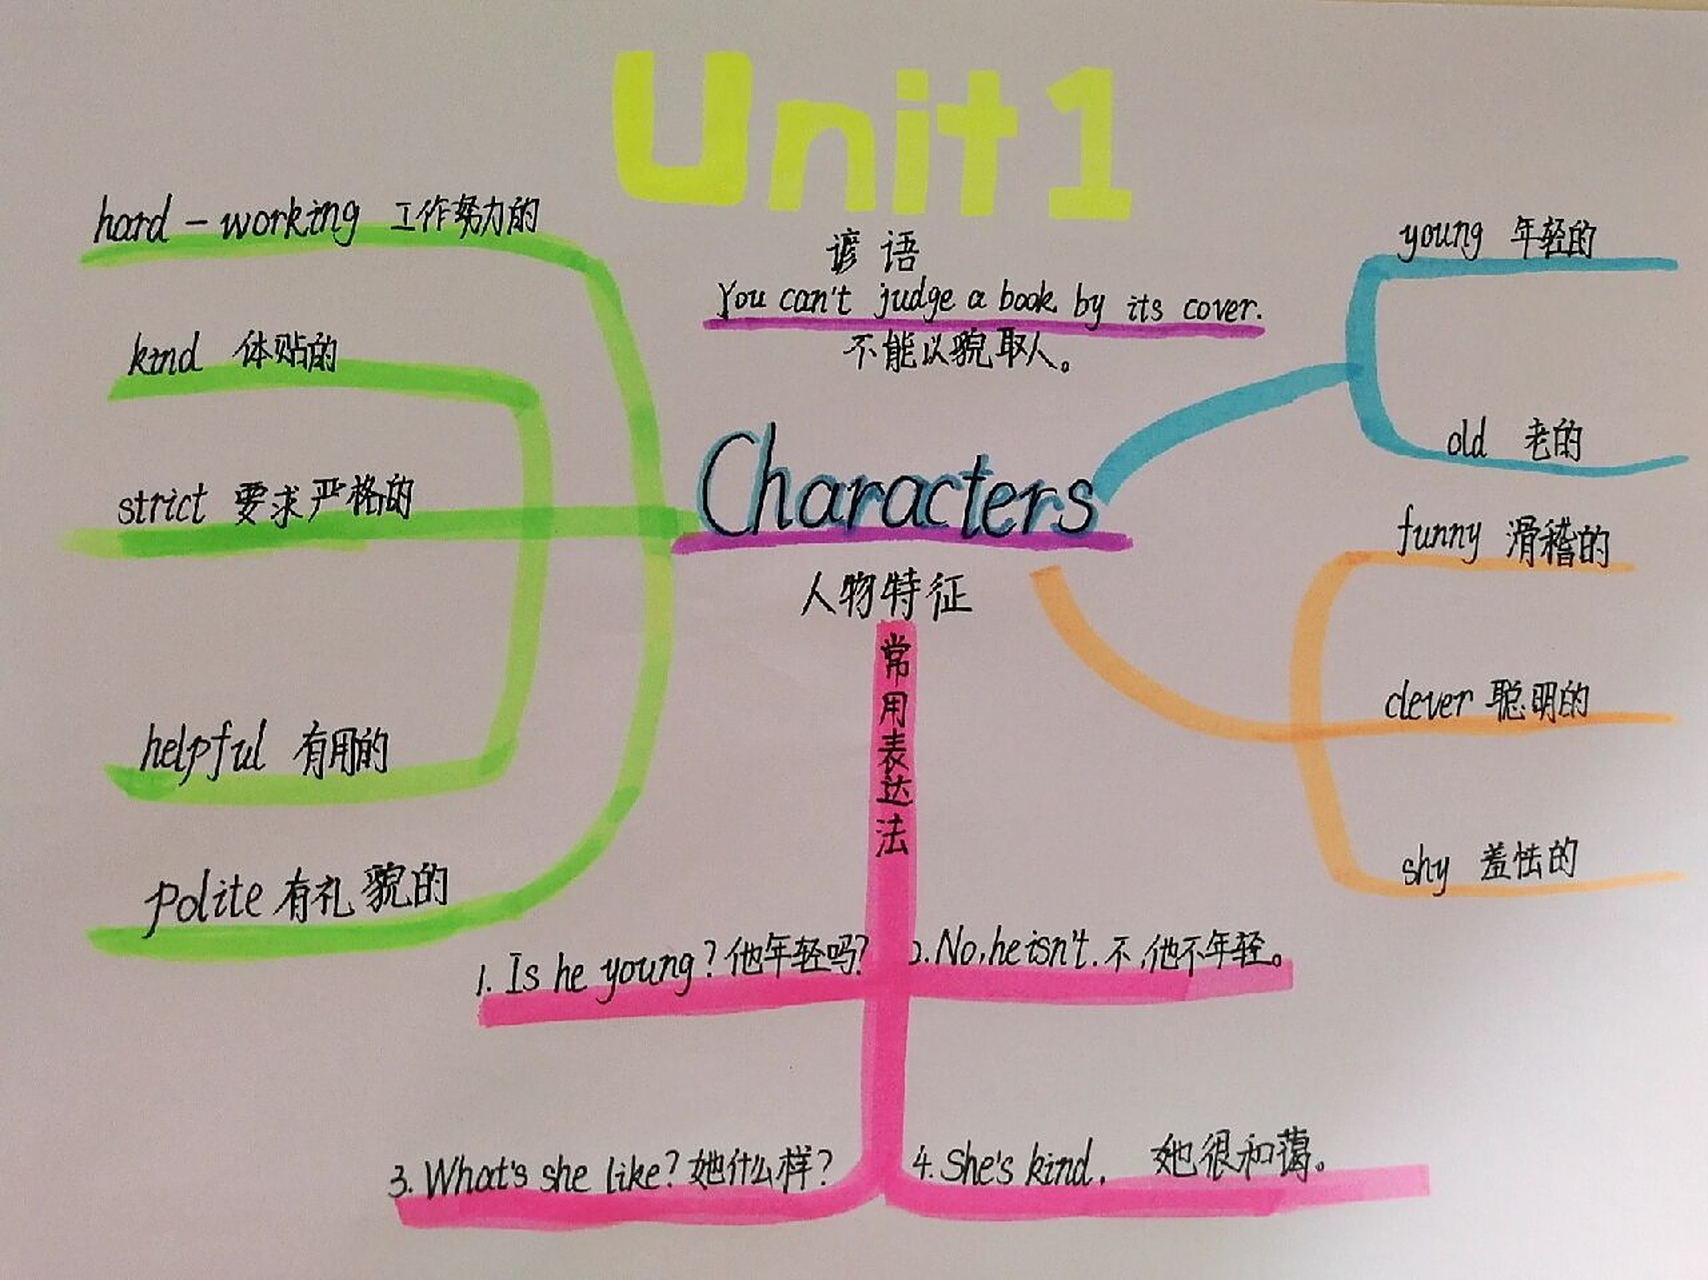 Unit1
谚语
You can't judge a book by its cover.
不能以貌取人。
Characters
人物特征
hard-working 工作努力的
kind 体贴的
strict 要求严格的
helpful 有用的
polite 有礼貌的
young 年轻的
old 老的
funny 滑稽的
clever 聪明的
shy 羞怯的
常用表达法
1. Is he young? 他年轻吗?
2. No, he isn't. 不,他不年轻。
3. What's she like? 她什么样?
4. She's kind. 她很和蔼。